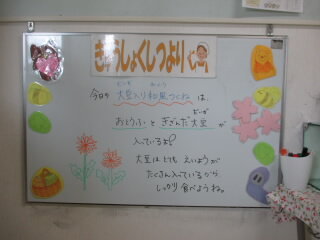 きゅうしょくしつより
今日の 大豆入り和風つくね は、
おとうふ と きざんだ 大豆 が
入っているよ!
大豆は とても えいようが
たくさん入っているから
しっかり 食べようね。